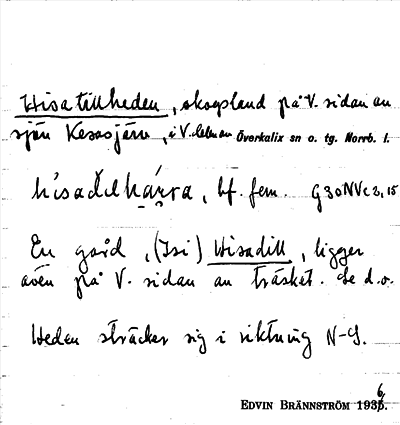 Hisatillheden, skogsland på V. sidan av
sjön Kesasjärv, i V. delen av Överkalix sn o. tg. Norrb. l.
hı́sadɩlhárra, bf. fem. G30NVc3,15
En gård, (Isi) Hisadill, ligger
även på V. sidan av träsket. Se d.o.
Heden sträcker sig i riktning N-S.
EDVIN BRÄNNSTRÖM 1936.